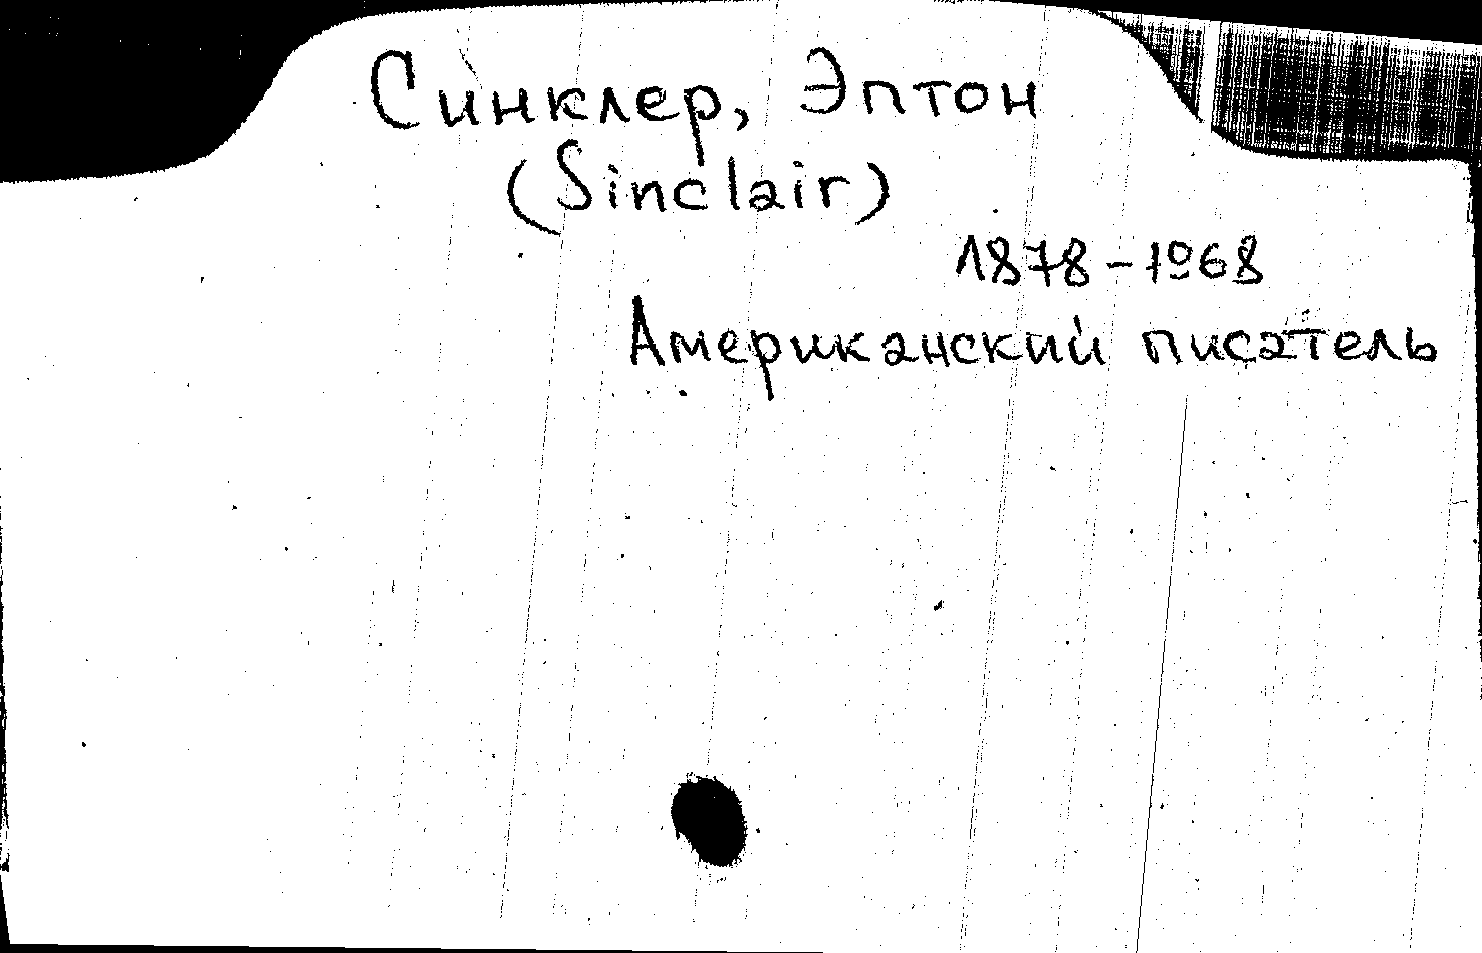 Синклер, Эптон
(Sinclair)
1878-1968
Американский писатель